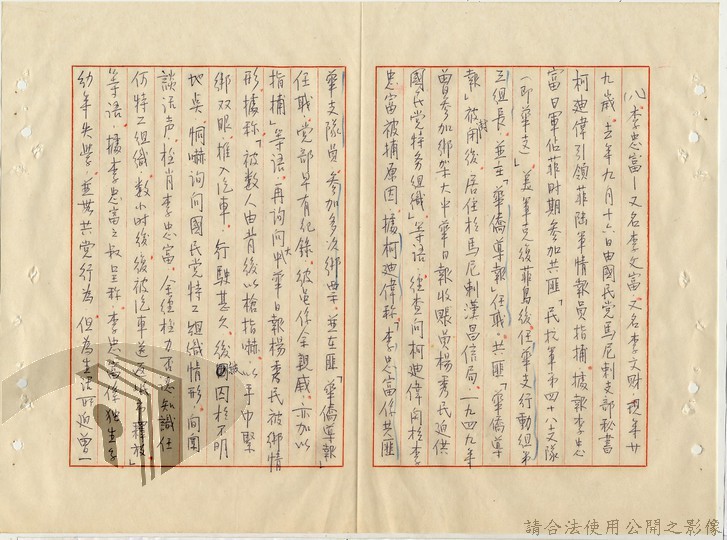 (八)李忠富—又名李文富又名李文財,現年廿
九歲,去年九月十六日由國民党馬尼剌支部秘書
柯迪偉引領菲陸軍情報員指捕,據報李忠
富日軍佔菲時期參加共匪「民抗軍第四十八支隊
(即華支)」,美軍克復菲島後任華支行動組第
三組長,並在「華僑導報」任職,共匪「華僑導
報」被封後,居住於馬尼剌漢昌信局,一九四九年
曾參加綁架大中華日報收賬員楊秀民迫供
國民党特務組織」等語,經查問柯迪偉關於李
忠富被捕原因,據柯迪偉稱「李忠富係共匪
華支隊員,參加多次綁票,並在匪「華僑導報」
任職,党部早有紀錄,彼虽係余親戚,亦加以
指捕」等語,再詢問大中華日報楊秀民被綁情
形,據稱「被數人由背後以槍指嚇,以手巾緊
綁双眼,推入汽車,行駛甚久,後被囚於不明
地点,恫嚇詢问國民党特工組織情形,间闻
談话声,极肖李忠富,余經极力否認知識任
何特工組織,數小时後,後被汽車送返岷市釋放」
等语,據李忠富之叔呈称:李忠富係独生子,
幼年失学,並無共党行為,但為生活所迫,曾一
請合法使用公開之影像